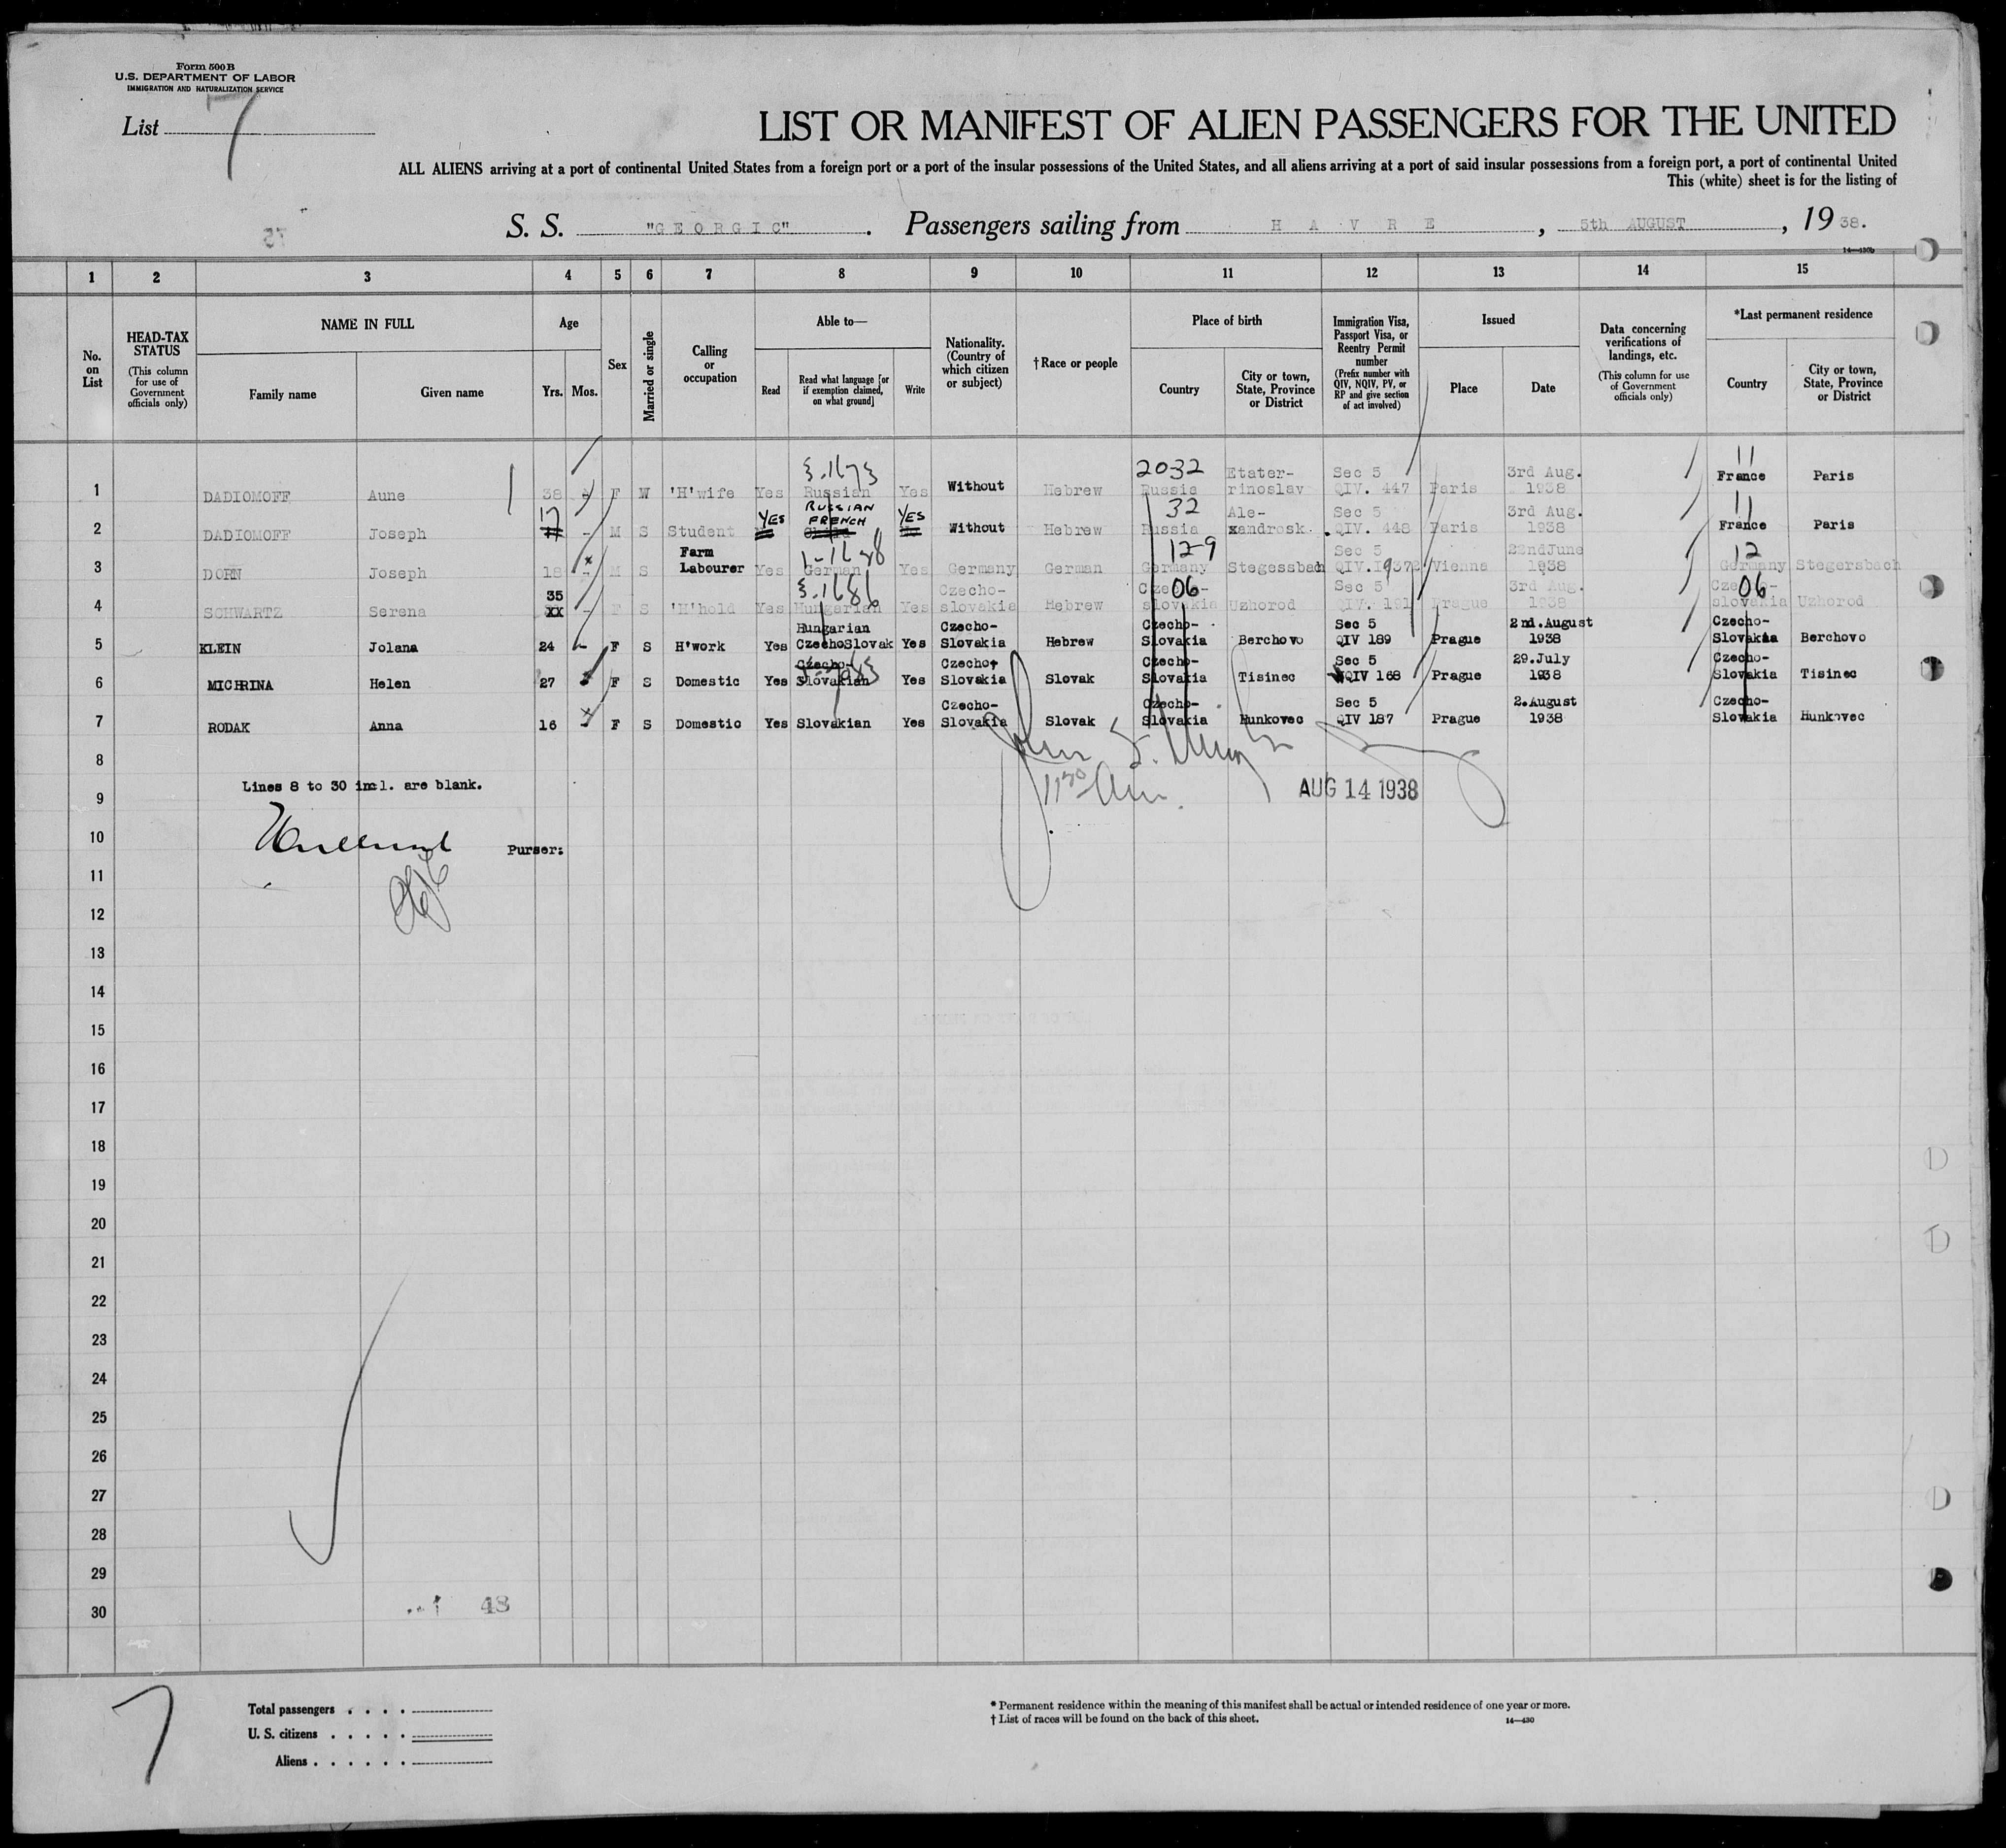 Form 500 B
U.S. DEPARTMENT OF LABOR
IMMIGRATION AND NATURALIZATION SERVICE
List 7
LIST OR MANIFEST OF ALIEN PASSENGERS FOR THE UNITED
ALL ALIENS arriving at a port of continental United States from a foreign port or a port of the insular possessions of the United States, and all aliens arriving at a port of said insular possessions from a foreign port, a port of continental United
This (white) sheet is for the listing of
S. S. "GEORGIC". Passengers sailing from HAVRE, 5th AUGUST, 1938.
14—430b
1 2 3 4 5 6 7 8 9 10 11 12 13 14 15
No. on List
HEAD-TAX STATUS
(This column for use of Government officials only)
NAME IN FULL
Family name
Given name
Age
Yrs. Mos.
Sex
Married or single
Calling or occupation
Able to—
Read
Read what language [or if exemption claimed, on what ground]
Write
Nationality. (Country of which citizen or subject)
† Race or people
Place of birth
Country
City or town, State, Province or District
Immigration Visa, Passport Visa, or Reentry Permit number
(Prefix number with QIV, NQIV, PV, or RP and give section of act involved)
Issued
Place
Date
Data concerning verifications of landings, etc.
(This column for use of Government officials only)
*Last permanent residence
Country
City or town, State, Province or District
1 DADIOMOFF Aune 38 - F W 'H'wife Yes Russian Yes Without Hebrew 2032 Russia Etater-rinoslav Sec 5 QIV. 447 Paris 3rd Aug. 1938 11 France Paris
2 DADIOMOFF Joseph 17 - M S Student YES RUSSIAN FRENCH YES Without Hebrew 32 Russia Ale-xandrosk. Sec 5 QIV. 448 Paris 3rd Aug. 1938 11 France Paris
3 DORN Joseph 18 - M S Farm Labourer Yes German Yes Germany German 129 Germany Stegessbach Sec 5 QIV. Vienna 22ndJune 1938 12 Germany Stegersbach
4 SCHWARTZ Serena 35 XX - F S 'H'hold Yes Hungarian Yes Czecho-slovakia Hebrew 06 Czecho-slovakia Uzhorod Sec 5 QIV. 191 Prague 3rd Aug. 1938 06 Czecho-slovakia Uzhorod
5 KLEIN Jolana 24 - F S H'work Yes Hungarian CzechoSlovak Yes Czecho-Slovakia Hebrew Czecho-Slovakia Berchovo Sec 5 QIV 189 Prague 2nd.August 1938 Czecho-Slovakia Berchovo
6 MICHRINA Helen 27 F S Domestic Yes Czecho-Slovakian Yes Czecho-Slovakia Slovak Czecho-Slovakia Tisinec Sec 5 QIV 168 Prague 29.July 1938 Czecho-Slovakia Tisinec
7 RODAK Anna 16 - F S Domestic Yes Slovakian Yes Czecho-Slovakia Slovak Czecho-Slovakia Hunkovec Sec 5 QIV 187 Prague 2.August 1938 Czecho-Slovakia Hunkovec
8
Lines 8 to 30 incl. are blank.
AUG 14 1938
9
10
Purser:
11
12
13
14
15
16
17
18
19
20
21
22
23
24
25
26
27
28
29
30
48
7
Total passengers . . . .
U. S. citizens . . . . .
Aliens . . . . . .
* Permanent residence within the meaning of this manifest shall be actual or intended residence of one year or more.
† List of races will be found on the back of this sheet.
14—430